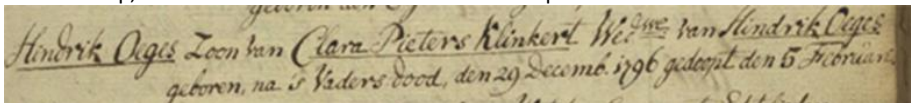 Hindrik Oeges Zoon van Clara Pieters Klinkert Wedwe van Hindrik Oeges
geboren, na 's Vaders dood, den 29 Decemb. 1796 gedoopt den 5 Februari